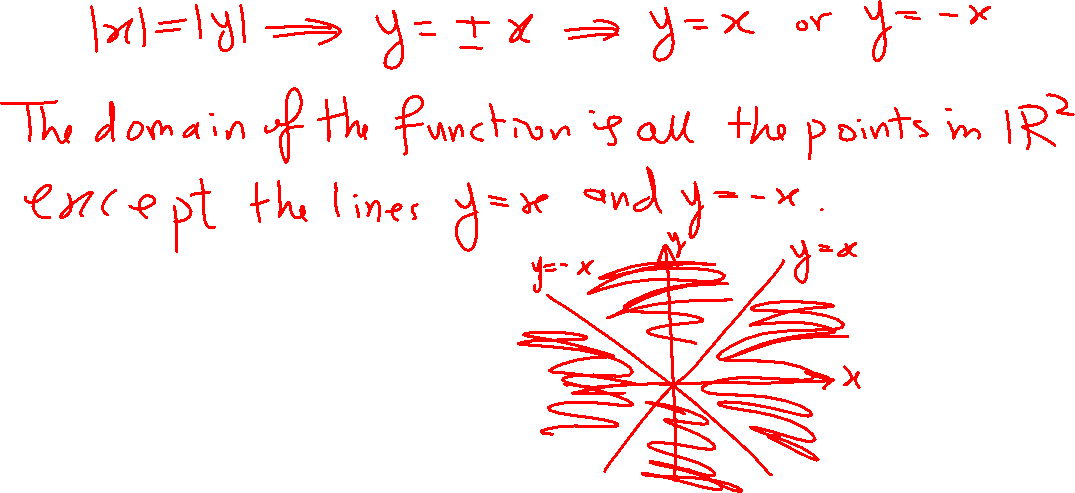 |x|=|y| ⟹ y = ± x ⟹ y=x or y=-x
The domain of the function is all the points in ℝ²
except the lines y=x and y=-x.
y=-x y y=x
x